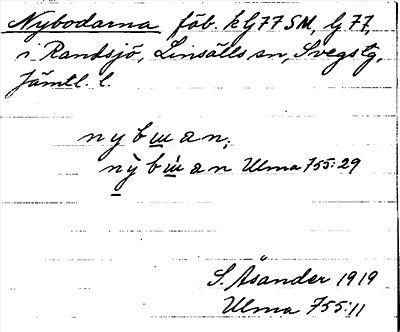 Nybodarna fäb. k Lj 77 SM, Lj 77,
i Randsjö, Linsälls sn, Svegs tg,
Jämtl. l.
n y b ɯ a n;
n ỳ̖ b ɯ̀ a n Ulma 755:29
S. Åsander 1919
Ulma 755:11